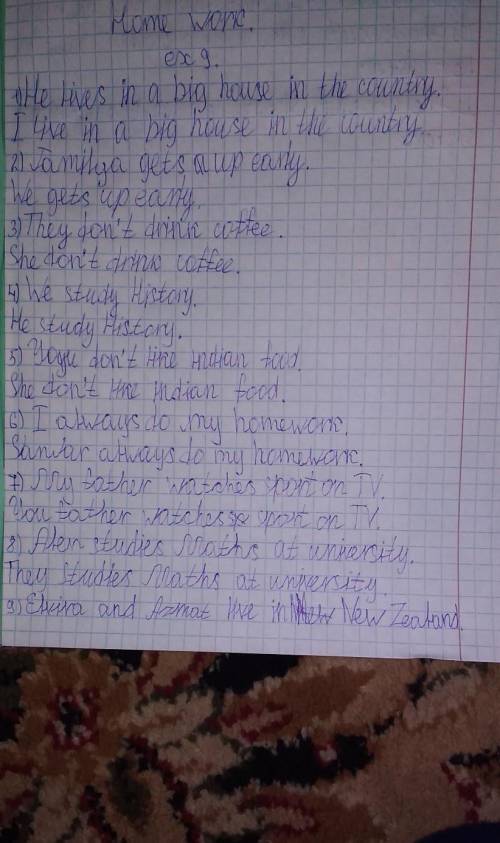 Home work.
ex 9.
1) He lives in a big house in the country.
I live in a big house in the country.
2) Jamilya gets up early.
We gets up early.
3) They don't drink coffee.
She don't drink coffee.
4) We study History.
He study History.
5) You don't like indian food.
She don't like indian food.
6) I always do my homework.
Sanjar always do my homework.
7) My father watches sport on TV.
You father watches sport on TV.
8) Alem studies Maths at university.
They studies Maths at university.
9) Elvira and Azmat live in New Zealand.